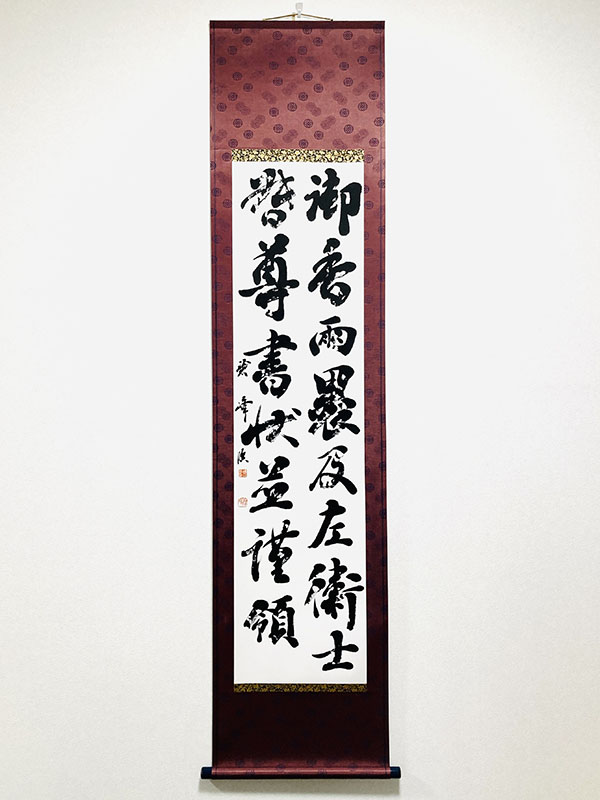 御香兩裹及左衛士
督尊書状並謹領